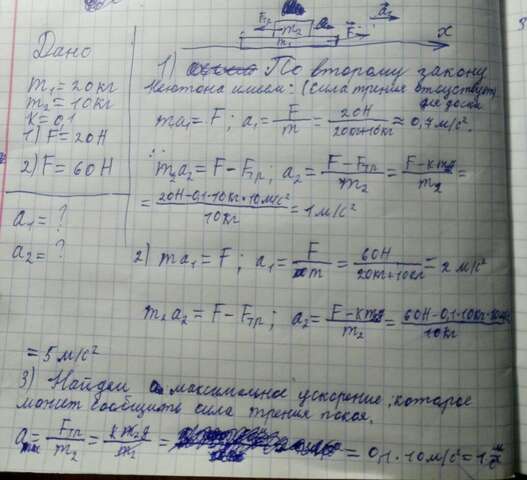 Дано
m₁=20кг
m₂=10кг
k=0,1
1) F=20H
2) F=60H
a₁=?
a₂=?
Fтр m₂ a₂
m₁ F a₁ x
1) По второму закону
Ньютона имеем: (сила трения отсутствует)
для доски
ma₁=F; a₁= F/m = 20H/(20кг+10кг) ≈ 0,7 м/с².
m₂a₂=F-Fтр; a₂= (F-Fтр)/m₂ = (F-kmg)/m₂ =
= (20H-0,1·10кг·10м/с²)/10кг = 1м/с²
2) ma₁=F; a₁= F/m = 60H/(20кг+10кг) = 2 м/с²
m₂a₂=F-Fтр; a₂= (F-kmg)/m₂ = (60H-0,1·10кг·10м/с²)/10кг
=5м/с²
3) Найдем максимальное ускорение, которое
может сообщить сила трения покоя.
a max = Fтр/m₂ = km₂g/m₂ = = 0,1·10м/с²=1м/с²